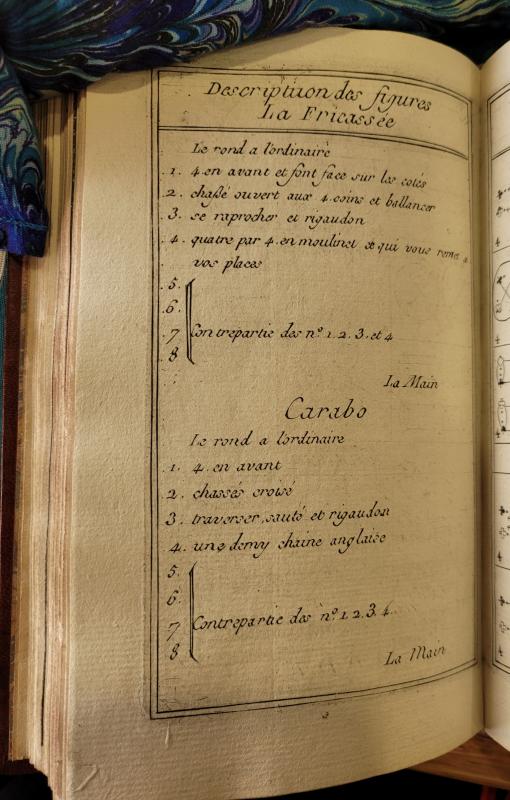 Description des figures
La Fricassée
Le rond a lordinaire
1. 4 en avant et font face sur les cotés
2. chassé ouvert aux 4 coins et ballancer
3. se raprocher et rigaudon
4. quatre par 4 en moulinet et qui vous remet a
vos places
5.
6.
7 Contrepartie des nº 1. 2. 3. et 4
8
La Main
Carabo
Le rond a lordinaire
1. 4 en avant
2. chassés croisé
3. traverser, sauté et rigaudon
4. une demy chaine anglaise
5.
6.
7 Contrepartie des nº 1. 2. 3. 4.
8
La Main